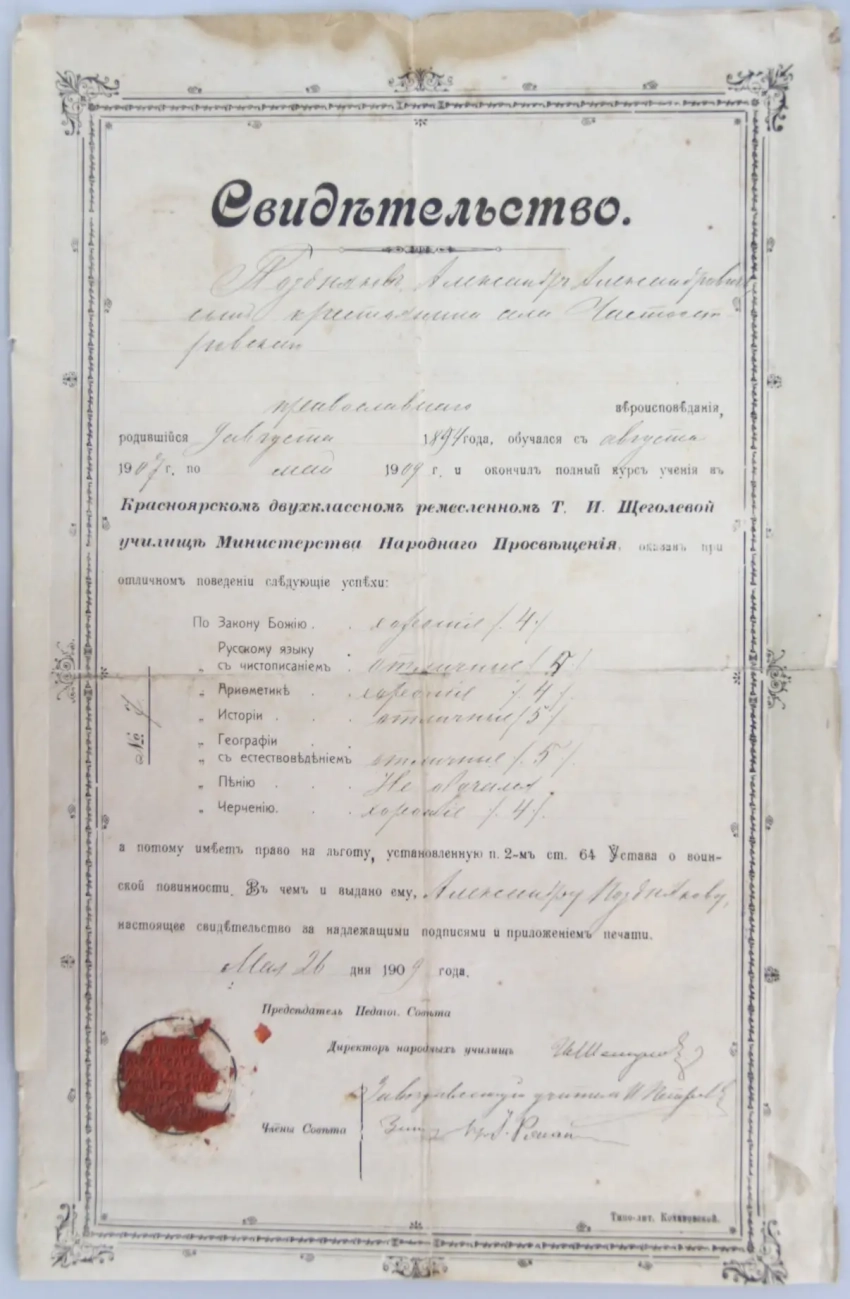 Свидѣтельство.
Поздняковъ Александръ Александровичъ
сынъ крестьянина села Частоост-
ровскаго
православнаго вѣроисповѣданія,
родившійся 9 августа 1894 года, обучался съ августа
1907 г. по май 1909 г. и окончилъ полный курсъ ученія въ
Красноярскомъ двухклассномъ ремесленномъ Т. И. Щеголевой
училищѣ Министерства Народнаго Просвѣщенія, оказавъ при
отличномъ поведеніи слѣдующіе успѣхи:
По Закону Божію . . хорошіе /4/
Русскому языку
„ съ чистописаніемъ . отличные /5/
„ Ариѳметикѣ . . хорошіе /4/.
„ Исторіи . . . отличные /5/.
„ Географіи . .
„ съ естествовѣдѣніемъ отличные /5/.
„ Пѣнію . . . Не обучался
„ Черченію. . . хорошіе /4/.
№ 7
а потому имѣетъ право на льготу, установленную п. 2-мъ ст. 64 Устава о воин-
ской повинности. Въ чемъ и выдано ему, Александру Позднякову,
настоящее свидѣтельство за надлежащими подписями и приложеніемъ печати.
Мая 26 дня 1909 года.
Предсѣдатель Педагог. Совѣта
Директоръ народныхъ училищъ
Завѣдывающій учитель И Петровъ
Члены Совѣта
Типо-лит. Кохановской.